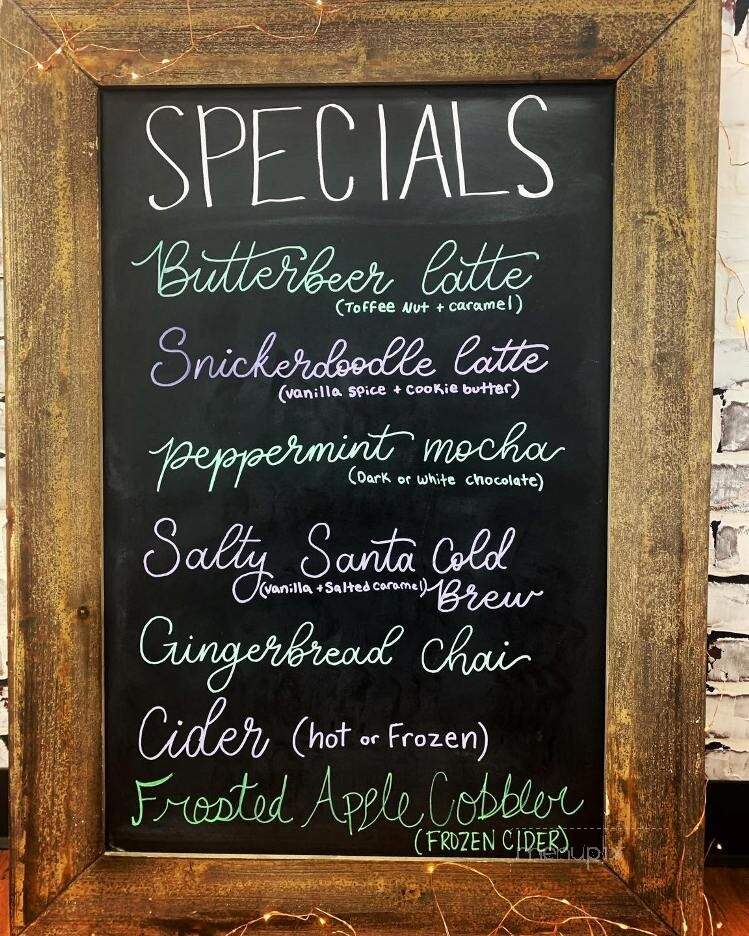 SPECIALS
Butterbeer latte
(Toffee Nut + caramel)
Snickerdoodle latte
(vanilla spice + cookie butter)
peppermint mocha
(Dark or white chocolate)
Salty Santa Cold
(vanilla + Salted caramel) Brew
Gingerbread Chai
Cider (hot or Frozen)
Frosted Apple Cobbler
(FROZEN CIDER)
menupix